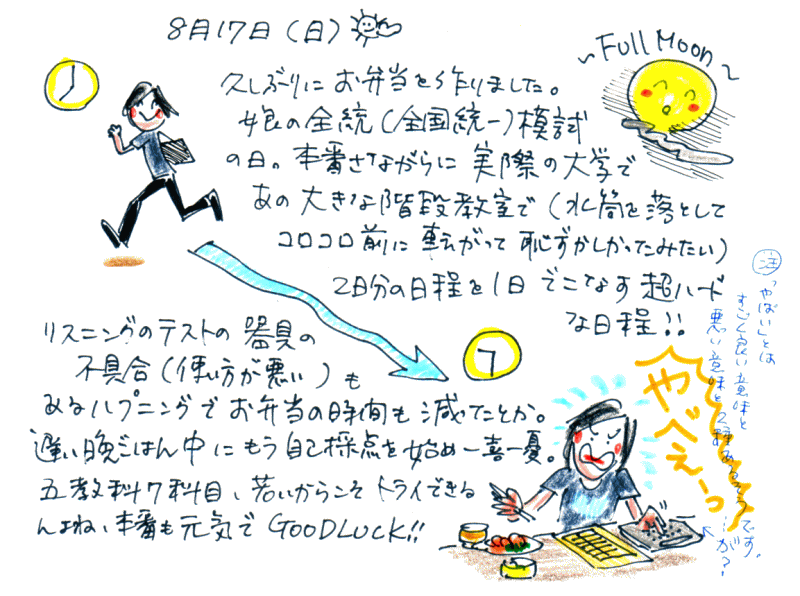 8月17日(日)
~Full Moon~
久しぶりにお弁当を作りました。
娘の全統(全国統一)模試
の日。本番さながらに実際の大学で
あの大きな階段教室で(水筒を落として
コロコロ前に転がって恥ずかしかったみたい)
2日分の日程を1日でこなす超ハード
な日程!!
リスニングのテストの器具の
不具合(使い方が悪い)も
あるハプニングでお弁当の時間も減ったことか。
遅い晩ごはん中にもう自己採点を始め一喜一憂。
五教科7科目、若いからこそトライできる
んよね、本番も元気でGOODLUCK!!
やべぇーっ
注
「やばい」とは
すごく良い意味と
悪い意味と2種あるそうです。
↑が?